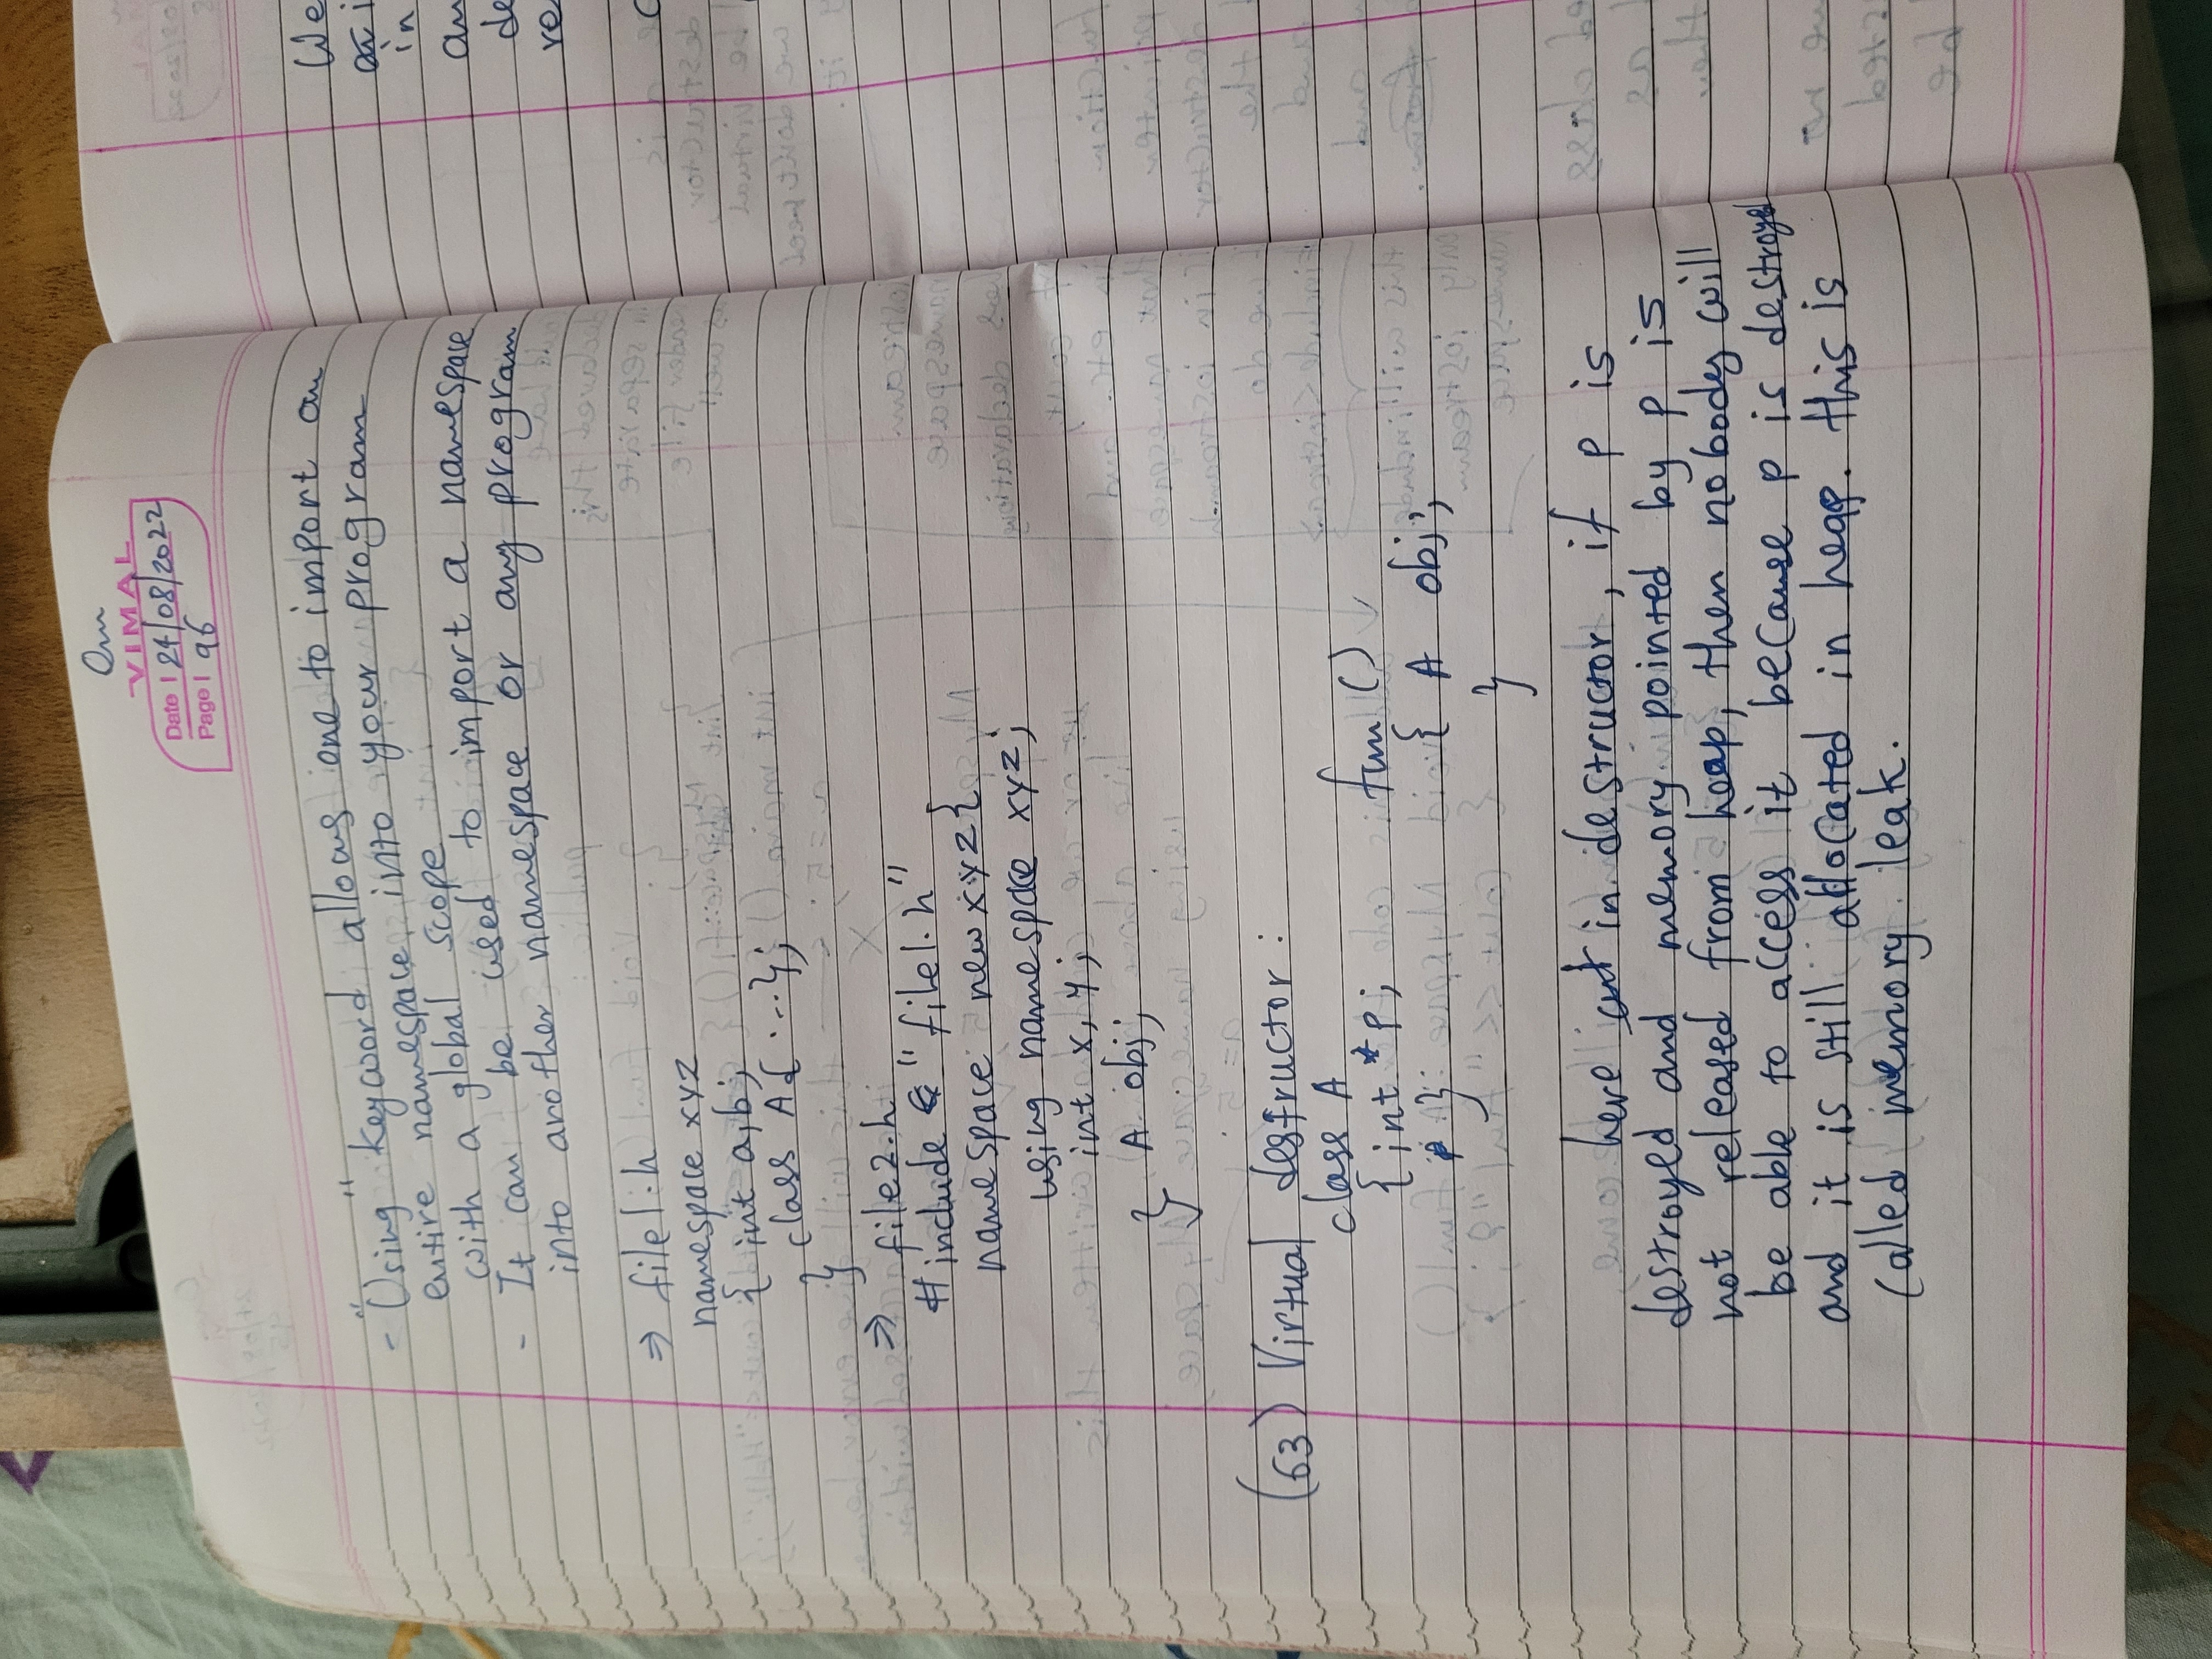 Om
VIMAL
Date | 24/08/2022
Page | 96
- "Using" keyword allows one to import an
entire namespace into your program
with a global scope
- It can be used to import a namespace
into another namespace or any program
⇒ file1.h
namespace xyz
{ int a,b;
class A{ ...};
}
⇒ file2.h
#include "file1.h"
namespace newxyz{
using namespace xyz;
int x, y;
A obj;
}
(63) Virtual destructor:
class A
{int *p; fun()
} { A obj;
}
here in destructor, if p is
destroyed and memory pointed by p is
not released from heap, then nobody will
be able to access it because p is destroyed
and it is still allocated in heap. this is
called memory leak.
We
i
in
an
de
re